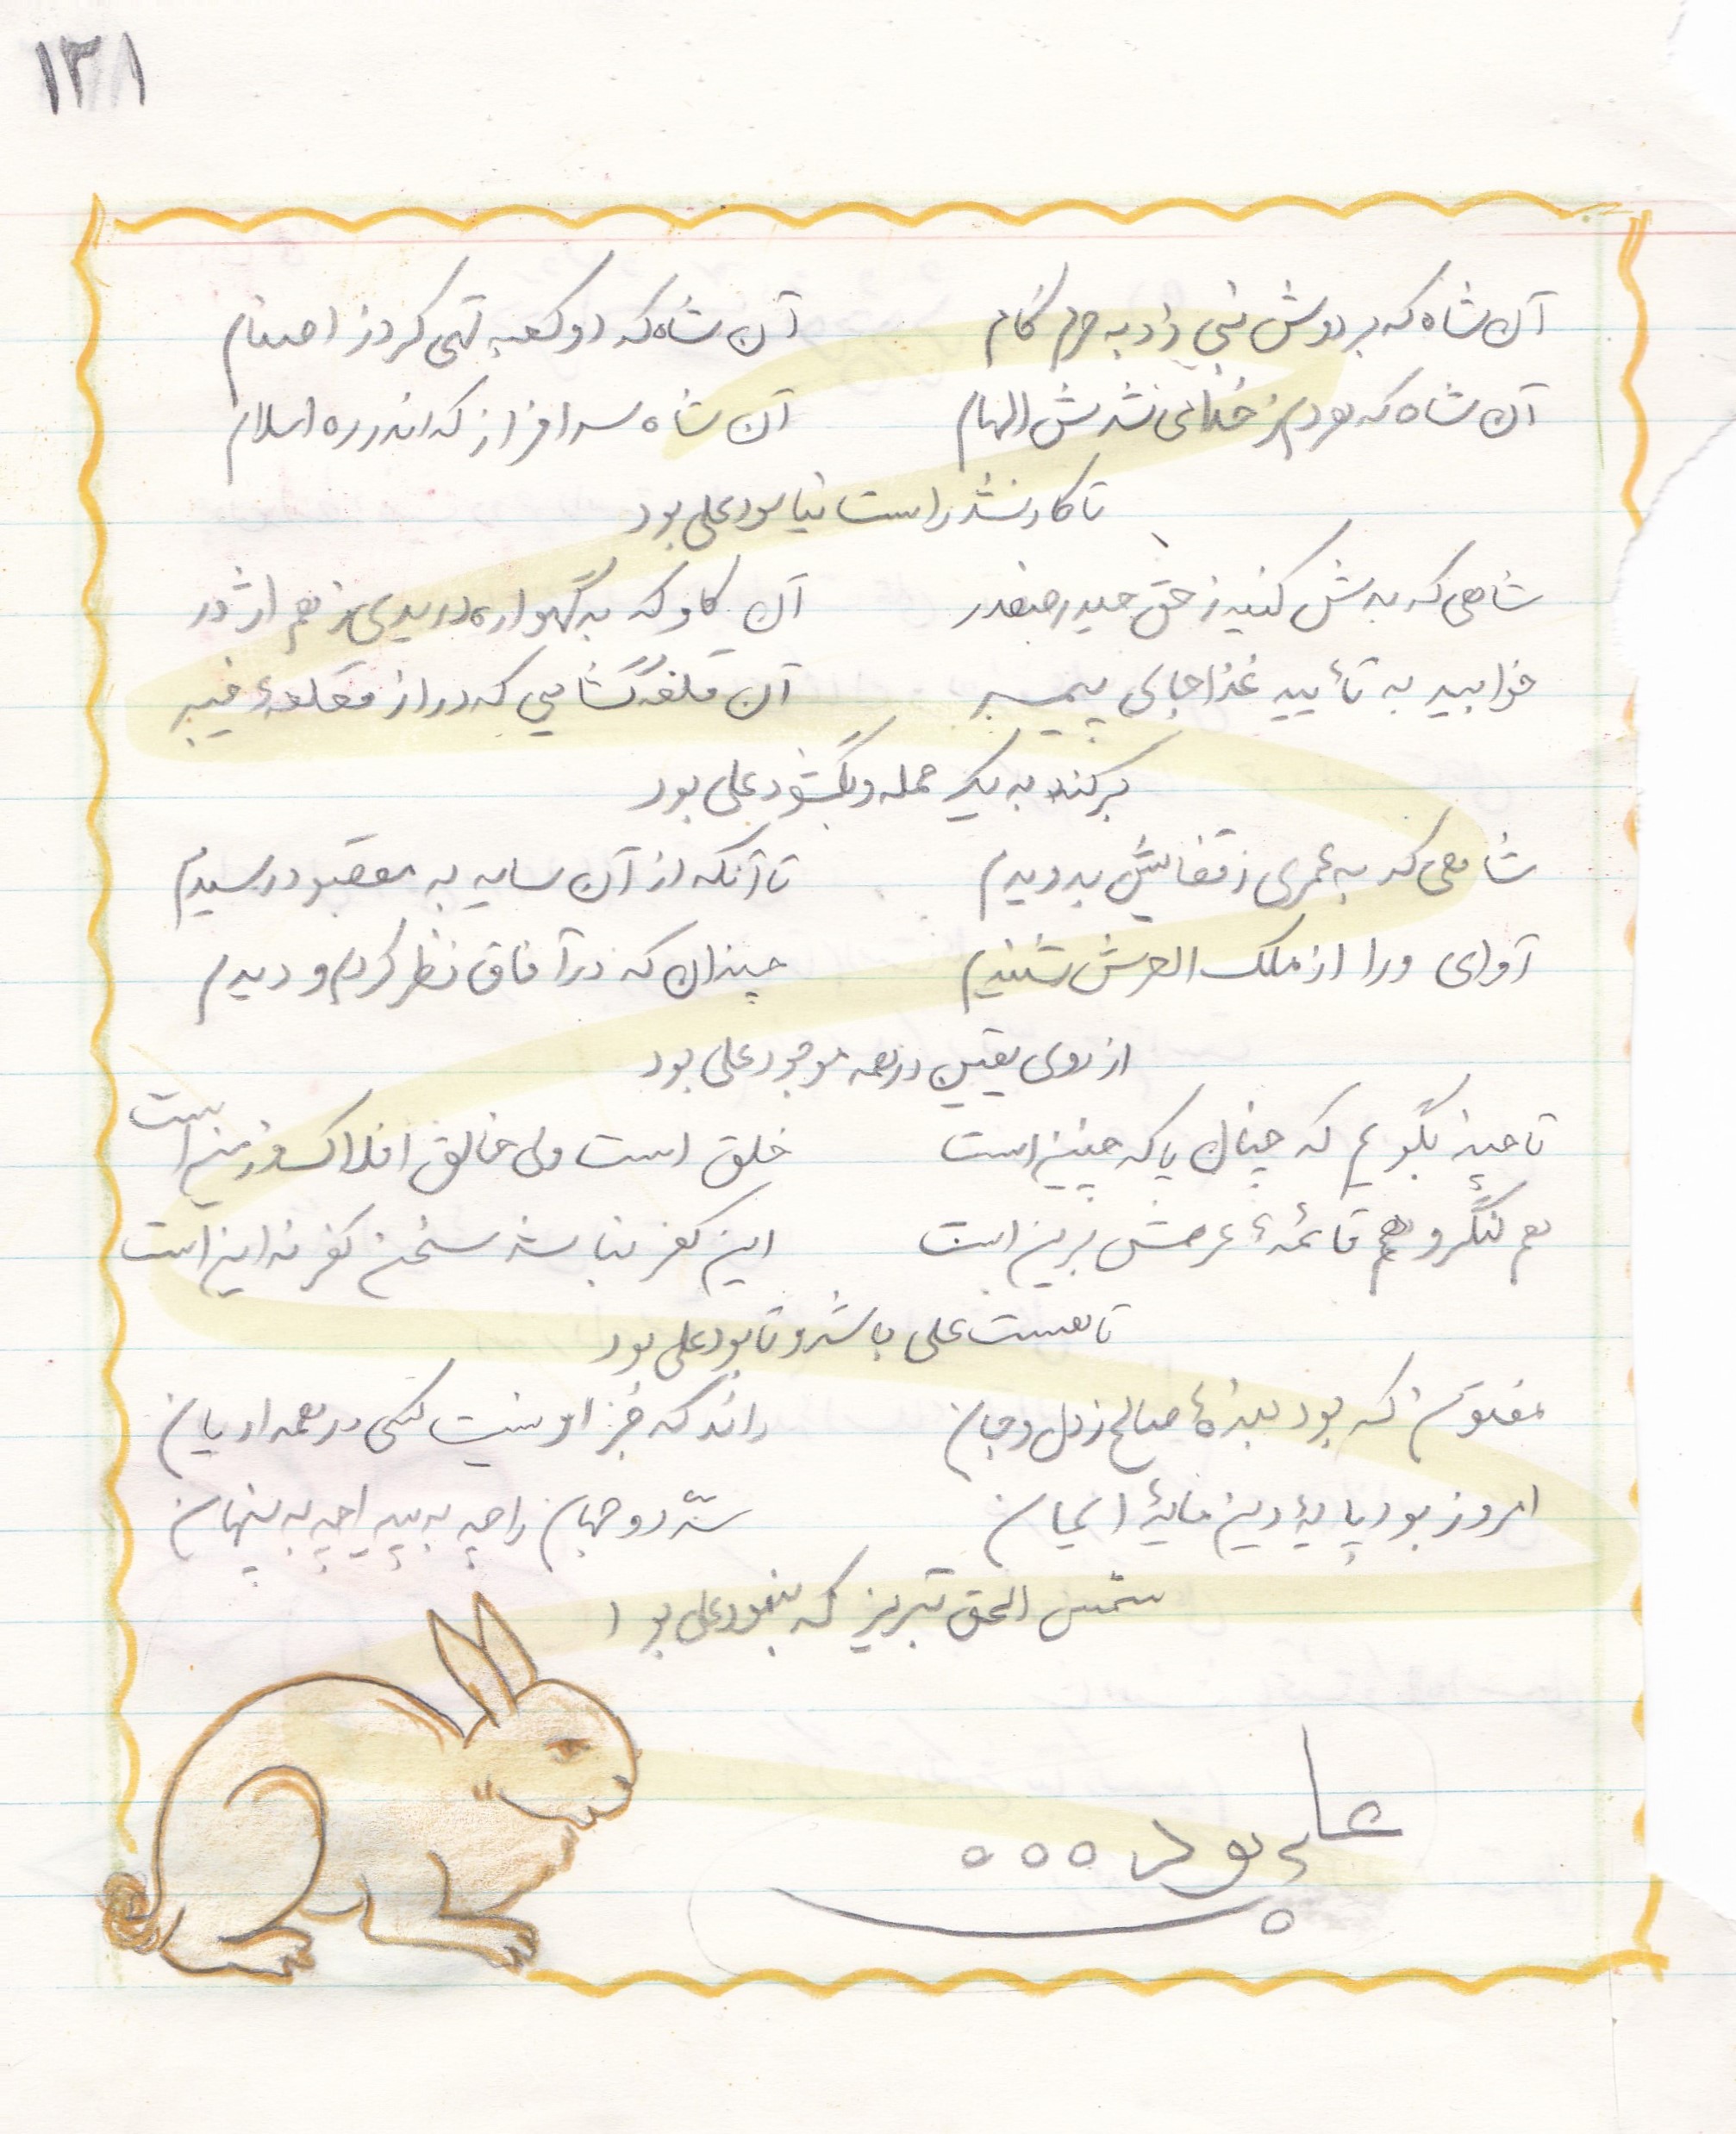 ۱۳۸۱
آن شاه که بر دوش نبی زد به حرم گام    آن شاه که او کعبه تهی کرد ز اصنام
آن شاه که بود از خدائی شدش الهام    آن شاه سرافراز که اندر ره اسلام
تا کار نشد راست نیاسود علی بود
شاهی که بدش کنیه ز حق حیدر صفدر    آن کاو که به گهواره دریدی ز هم اژدر
خوابید به تأیید خدا جای پیمبر    آن قلعه گشایی که در از قلعهٔ خیبر
برکند به یک حمله و بگشود علی بود
شاهی که به عمری ز قفایش بدویدم    تا آنکه از آن سایه به مقصود رسیدم
آوای ورا از ملک العرش شنیدم    چندان که در آفاق نظر کردم و دیدم
از روی یقین در همه موجود علی بود
تا چند بگویم که چنان یا که چنین است    خلق است ولی خالق افلاک و زمین است
هم لنگر و هم قائمهٔ عرش برین است    این کفر نباشد سخن کفر نه این است
تا هست علی باشد و تا بود علی بود
مفتون که بود بندهٔ صالح ز دل و جان    داند که جز او نیست کسی در همه ادیان
امروز بود پایهٔ دین مایهٔ ایمان    شه دو جهان را چه به پیدا چه به پنهان
شمس الحق تبریز که بنمود علی بود
علی بود ...